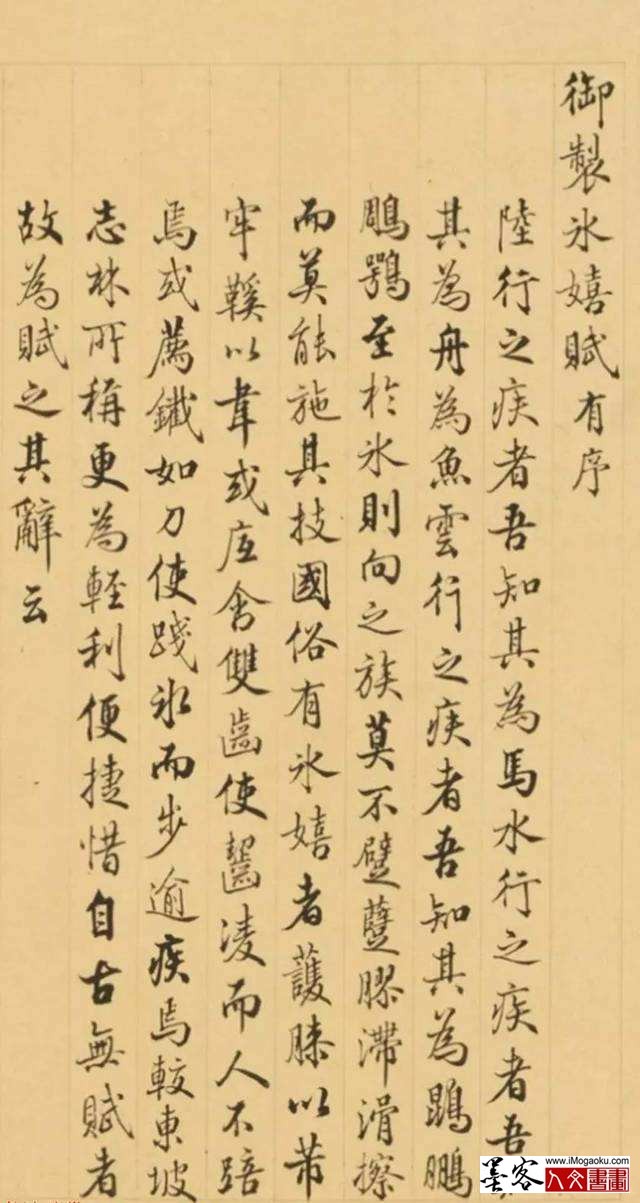 御製冰嬉賦有序
陸行之疾者吾知其為馬水行之疾者吾
其為舟為魚雲行之疾者吾知其為鵾鵬
鵰鶚至於冰則向之族莫不躄躠膠滯滑擦
而莫能施其技國俗有冰嬉者護膝以芾
牢鞵以韋或底含雙齒使齧凌而人不踣
焉或薦鐵如刀使踐冰而步逾疾焉較東坡
志林所稱更為輕利便捷惜自古無賦者
故為賦之其辭云
www.iMogaoku.com
墨客人文書畫